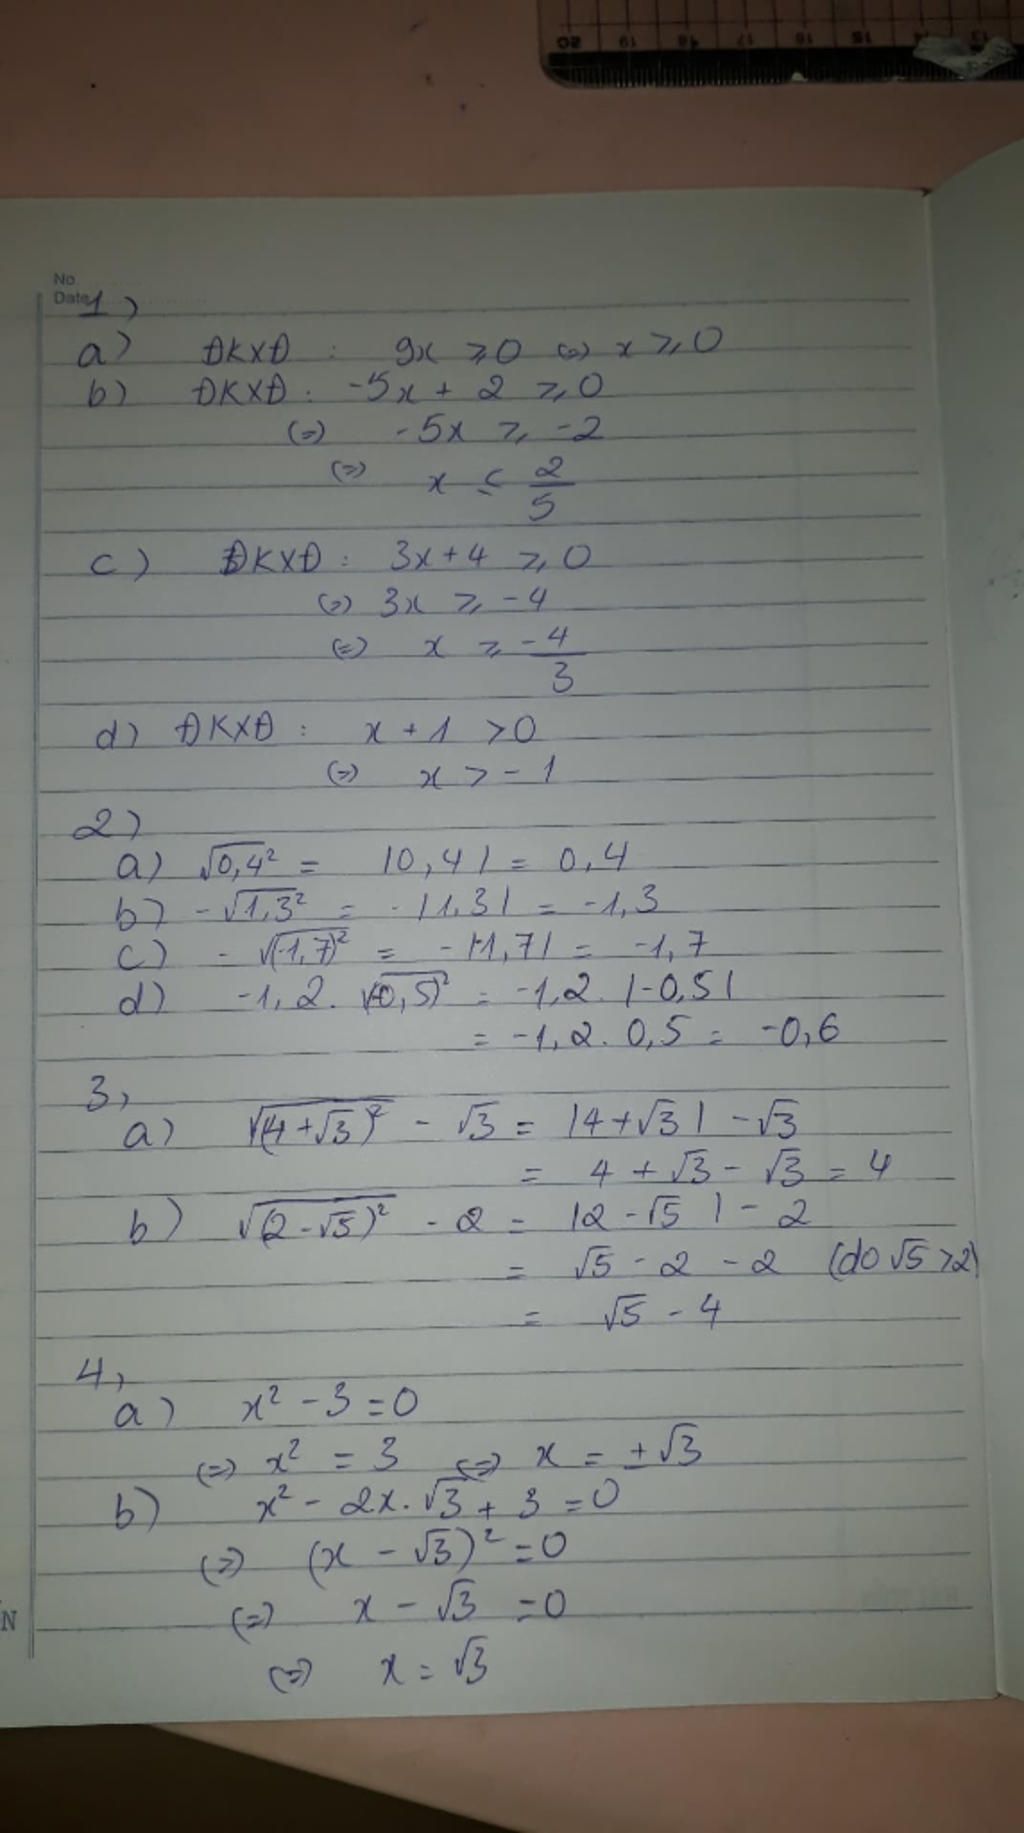 20 19 18 17 16 15 14 13
No.
Date
1)
a) ĐKXĐ : 9x ⩾ 0 (=) x ⩾ 0
b) ĐKXĐ : -5x + 2 ⩾ 0
(=) -5x ⩾ -2
(=) x ≤ 2/5
c) ĐKXĐ : 3x + 4 ⩾ 0
(=) 3x ⩾ -4
(=) x ⩾ -4/3
d) ĐKXĐ : x + 1 > 0
(=) x > -1
2)
a) √0,4² = |0,4| = 0,4
b) -√1,3² = -|1,3| = -1,3
c) -√(-1,7)² = -|-1,7| = -1,7
d) -1,2 . √(-0,5)² = -1,2 . |-0,5|
= -1,2 . 0,5 = -0,6
3,
a) √(4+√3)² - √3 = |4+√3| - √3
= 4 + √3 - √3 = 4
b) √(2-√5)² - 2 = |2-√5| - 2
= √5 - 2 - 2 (do √5 > 2)
= √5 - 4
4,
a) x² - 3 = 0
(=) x² = 3 (=) x = ±√3
b) x² - 2x.√3 + 3 = 0
(=) (x - √3)² = 0
(=) x - √3 = 0
N
(=) x = √3